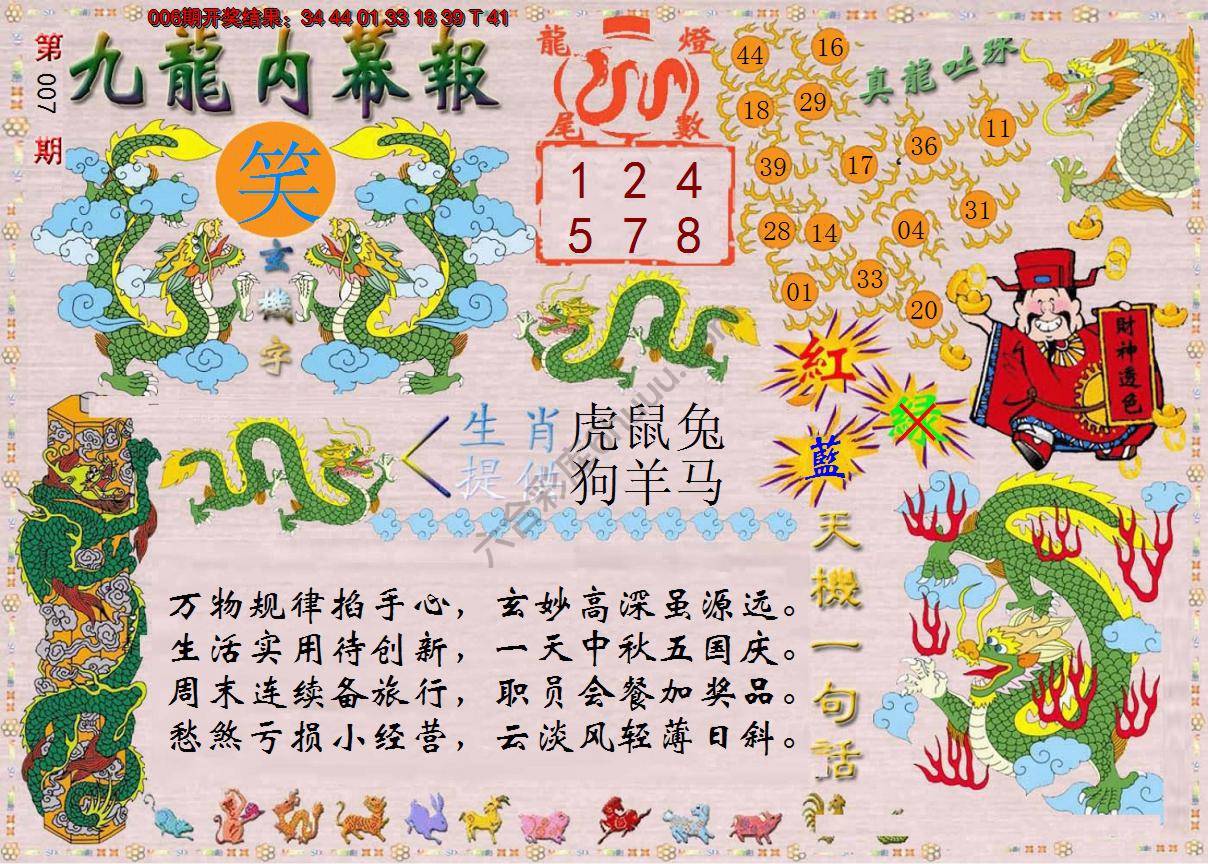 006期开奖结果：34 44 01 33 18 39 T 41
第007期
九龍内幕報
笑
玄機字
龍燈尾數
1 2 4
5 7 8
真龍吐珠
44 16
18 29
39 17 36 11
28 14 04 31
01 33 20
財神透色
紅
綠
藍
生肖 虎鼠兔
提供 狗羊马
万物规律掐手心，玄妙高深虽源远。
生活实用待创新，一天中秋五国庆。
周末连续备旅行，职员会餐加奖品。
愁煞亏损小经营，云淡风轻薄日斜。
天機一句話